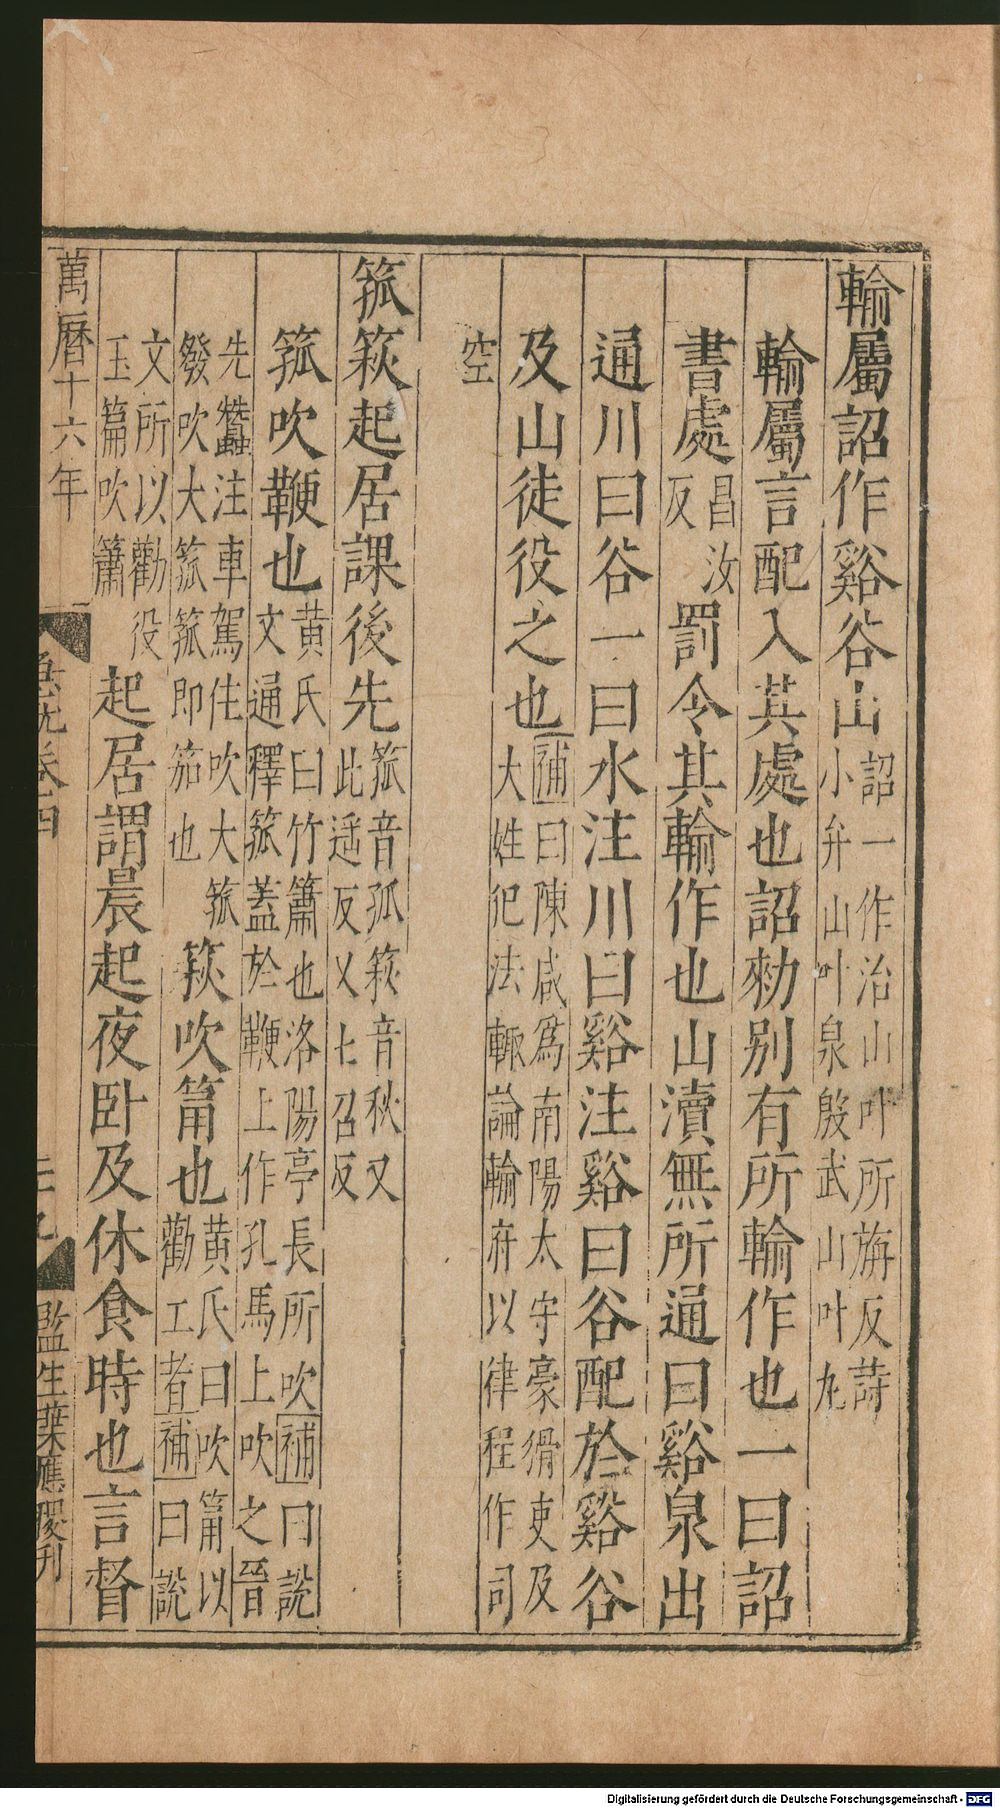 輸屬詔作谿谷山詔一作冶山叶所旃反詩
小弁山叶泉殷武山叶丸
輸屬言配入其處也詔勑别有所輸作也一曰詔
書處昌汝反罰令其輸作也山瀆無所通曰谿泉出
通川曰谷一曰水注川曰谿注谿曰谷配於谿谷
及山徒役之也補曰陳咸爲南陽太守豪猾吏及
大姓犯法輙論輸府以律程作司
空
箛篍起居課後先箛音孤篍音秋又
此遥反又七召反
箛吹鞭也黄氏曰竹簫也洛陽亭長所吹補曰説
文通釋箛蓋於鞭上作孔馬上吹之晉
先蠶注車駕住吹大箛
發吹大箛箛即笳也篍吹筩也黄氏曰吹筩以
勸工者補曰説
文所以勸役
玉篇吹簫起居謂晨起夜卧及休食時也言督
萬曆十六年
急就卷四
二十九
監生葉應暖刊
Digitalisierung gefördert durch die Deutsche Forschungsgemeinschaft - DFG